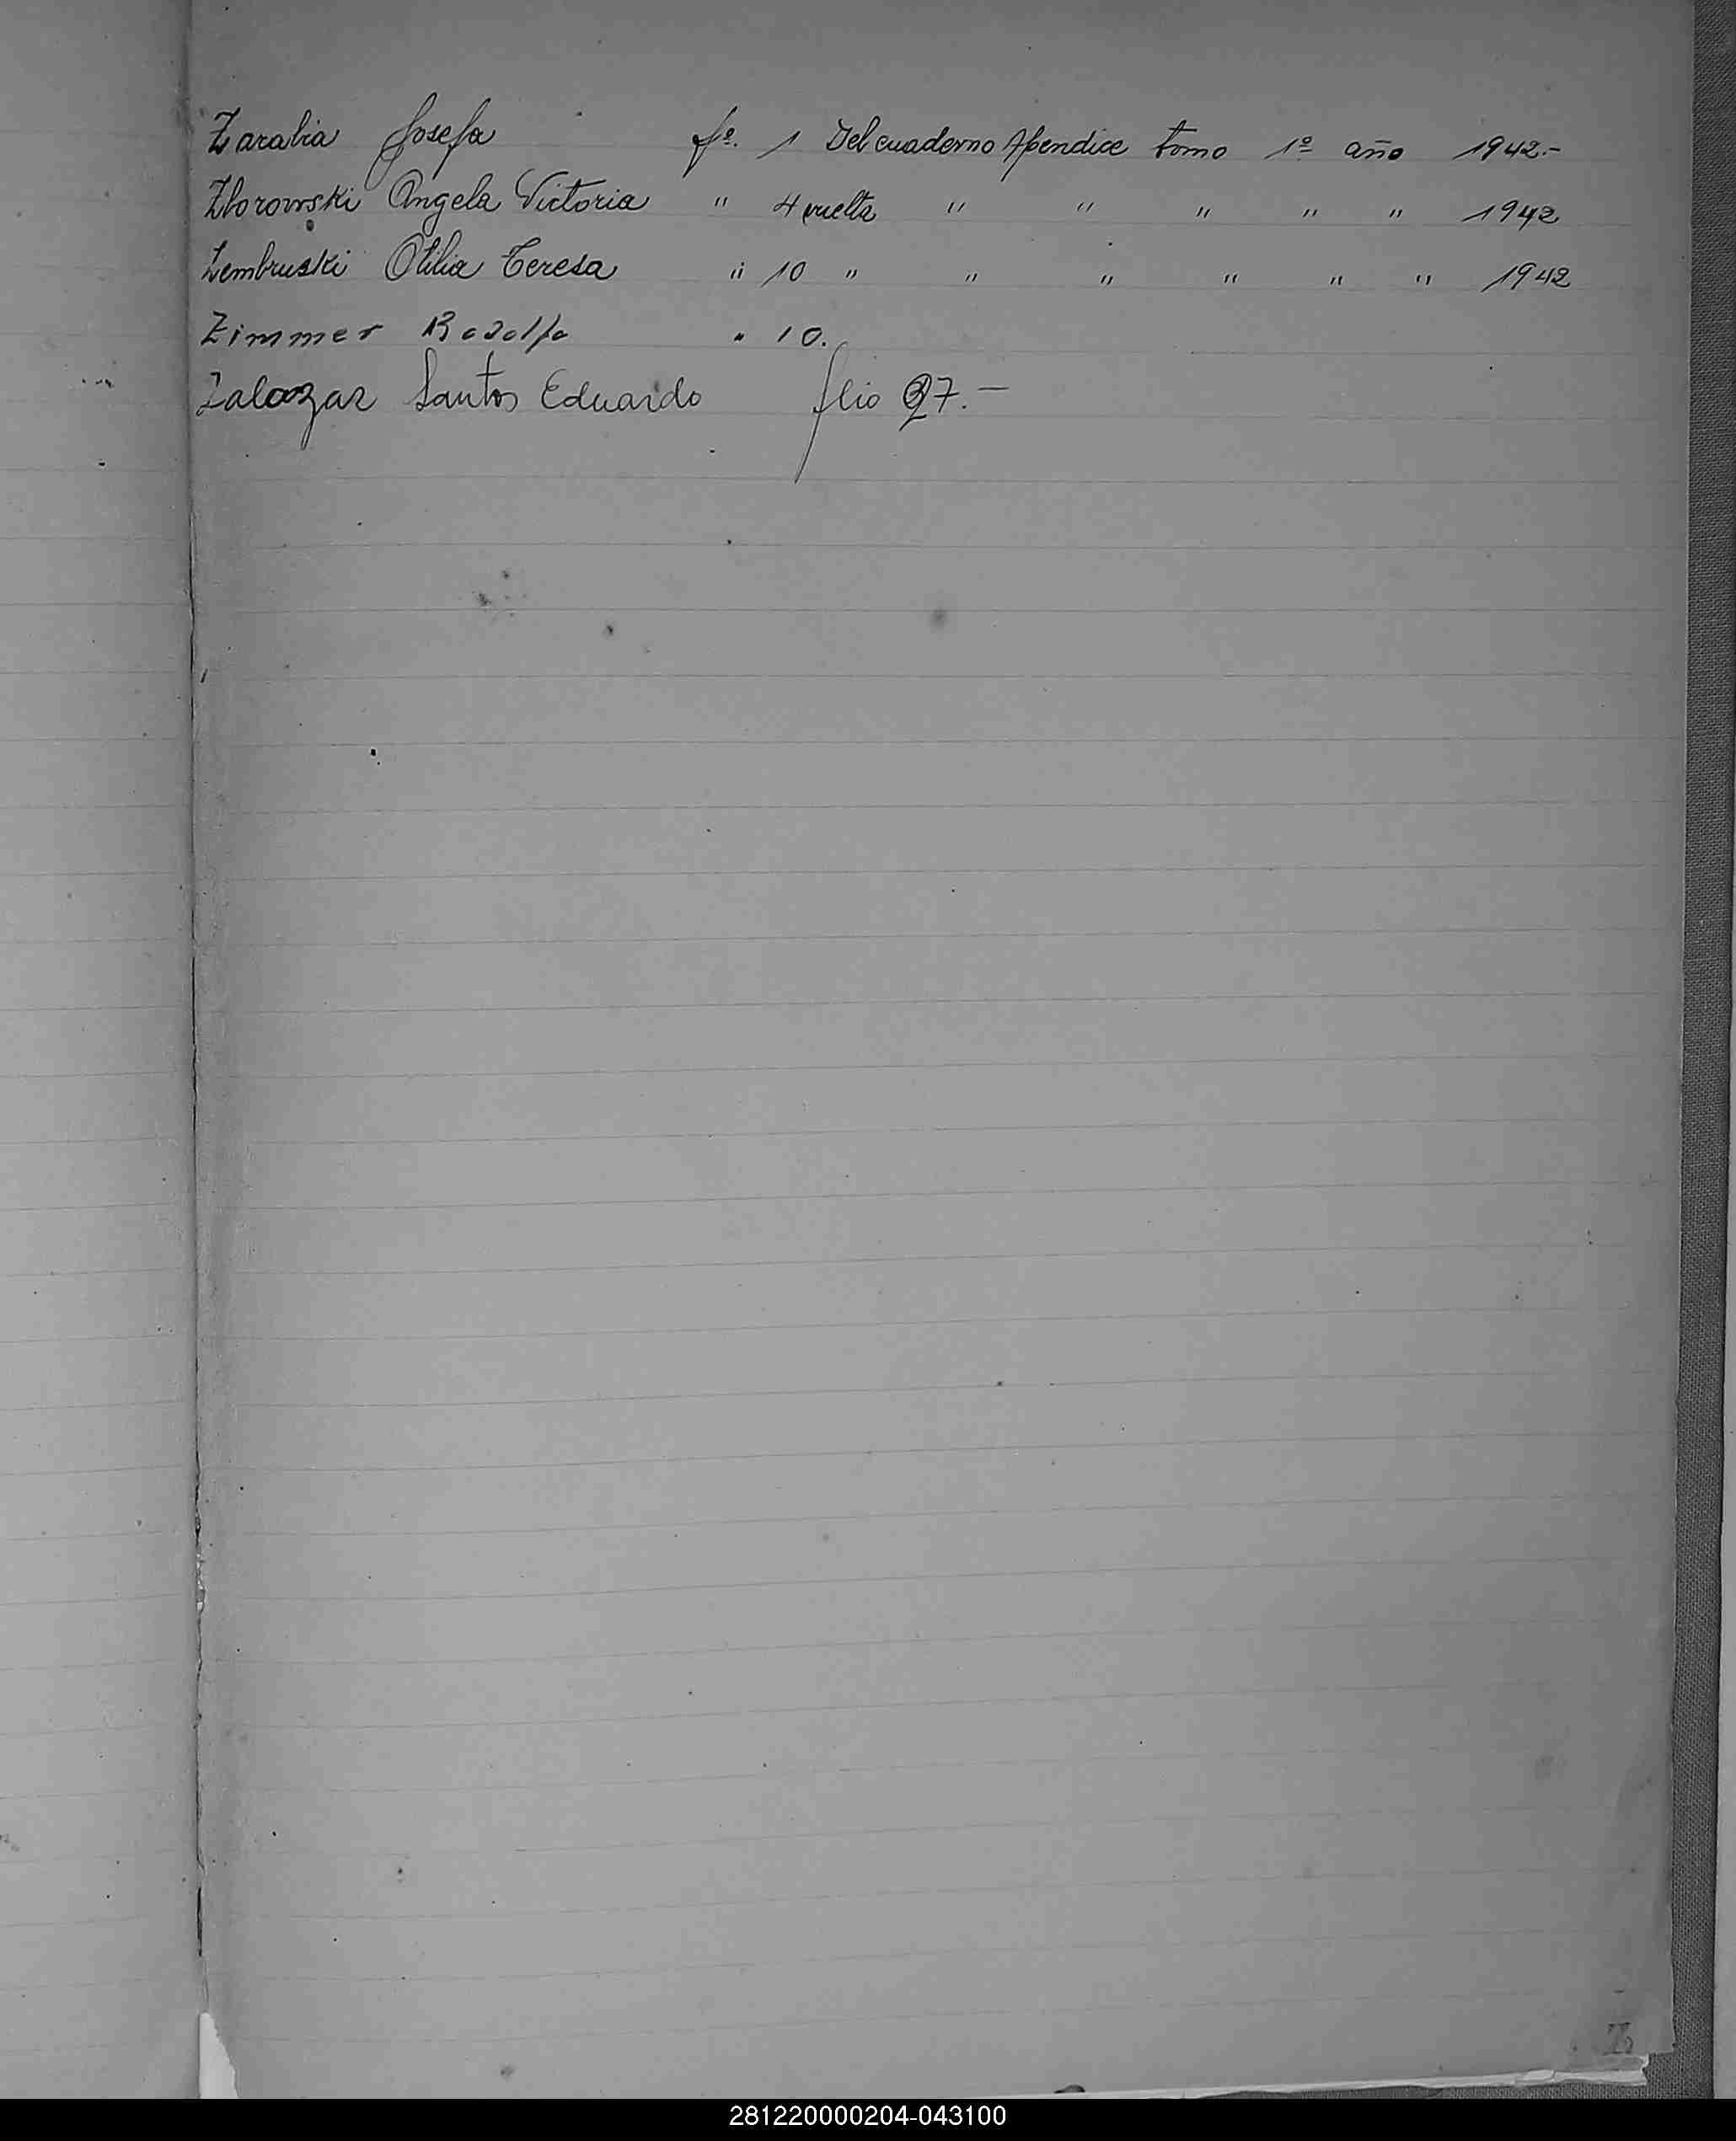 Zaralia Josefa fº. 1 Del cuaderno Apendice tomo 1º año 1942.-
Zborowski Angela Victoria " 4 vuelta " " " " " 1942
Zembruski Otilia Teresa " 10 " " " " " " 1942
Zimmer Rodolfo " 10.
Zalazar Santos Eduardo flio 27.-
Z
281220000204-043100